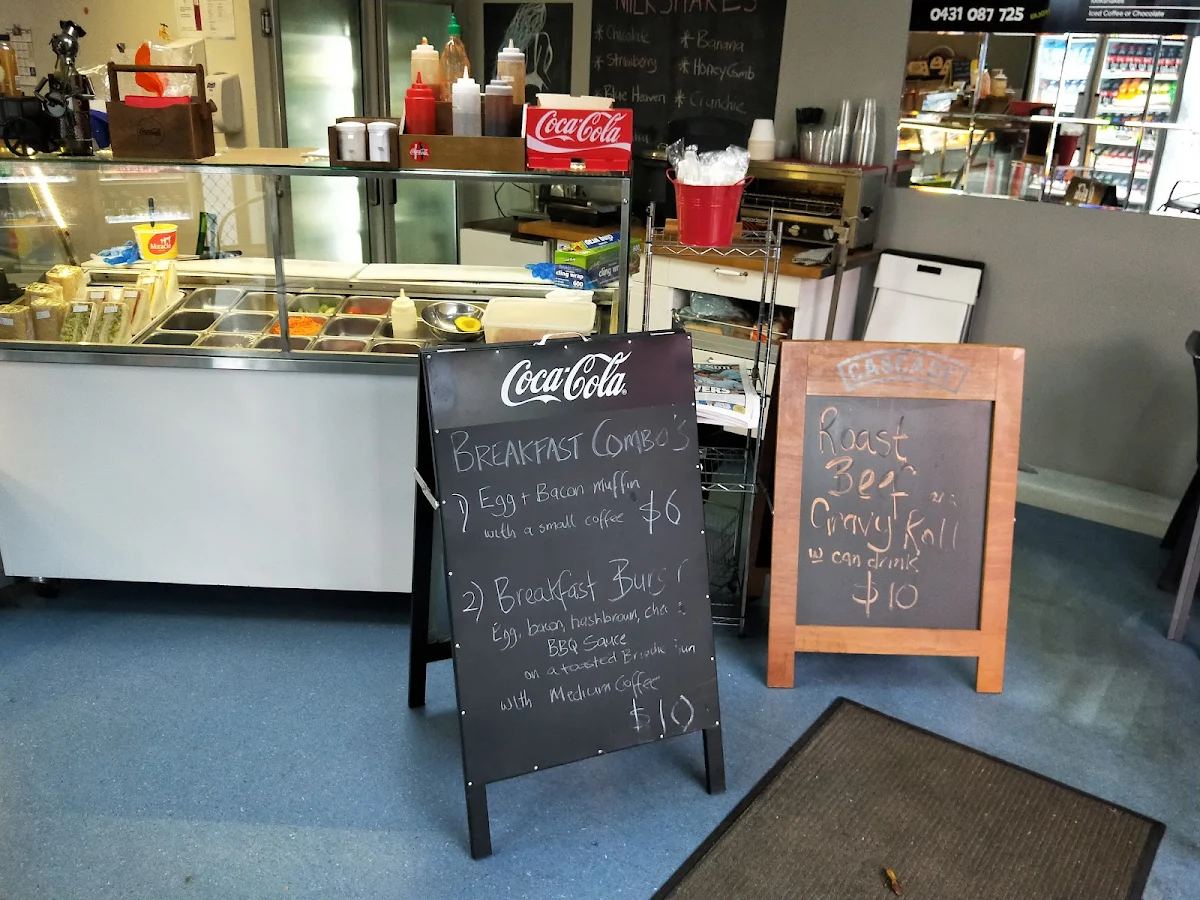 MILKSHAKES
* Chocolate
* Banana
* Strawberry
* HoneyComb
Blue Heaven
* Crunchie
0431 087 725
Milkshakes
Iced Coffee or Chocolate
Coca-Cola
cling wrap
600
Coca-Cola
BREAKFAST COMBO'S
1) Egg + Bacon muffin
with a small coffee $6
2) Breakfast Burg r
Egg, bacon, hashbrown, che
BBQ Sauce
on a toasted Brioche un
with Medium Coffee
$10
CASCADE
Roast
Beef
Gravy Roll
w can drink
$10